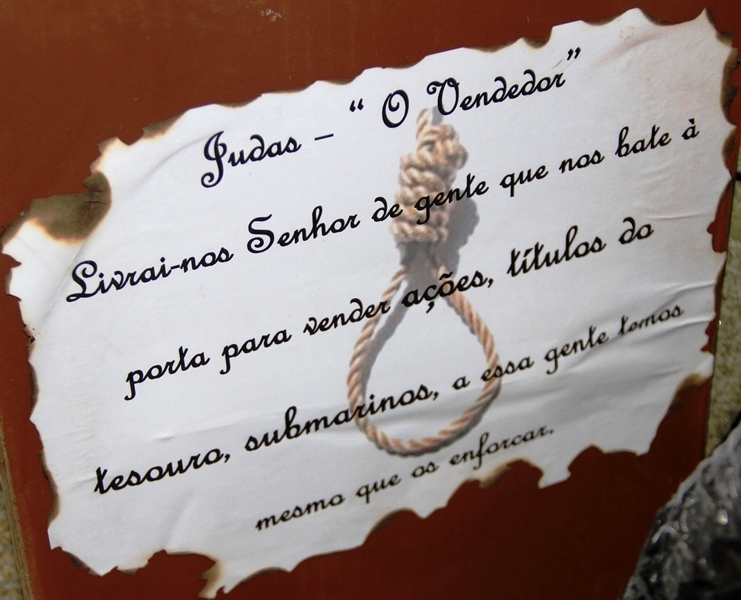 Judas – “ O Vendedor”
Livrai-nos Senhor de gente que nos bate à
porta para vender ações, títulos do
tesouro, submarinos, a essa gente temos
mesmo que os enforcar.